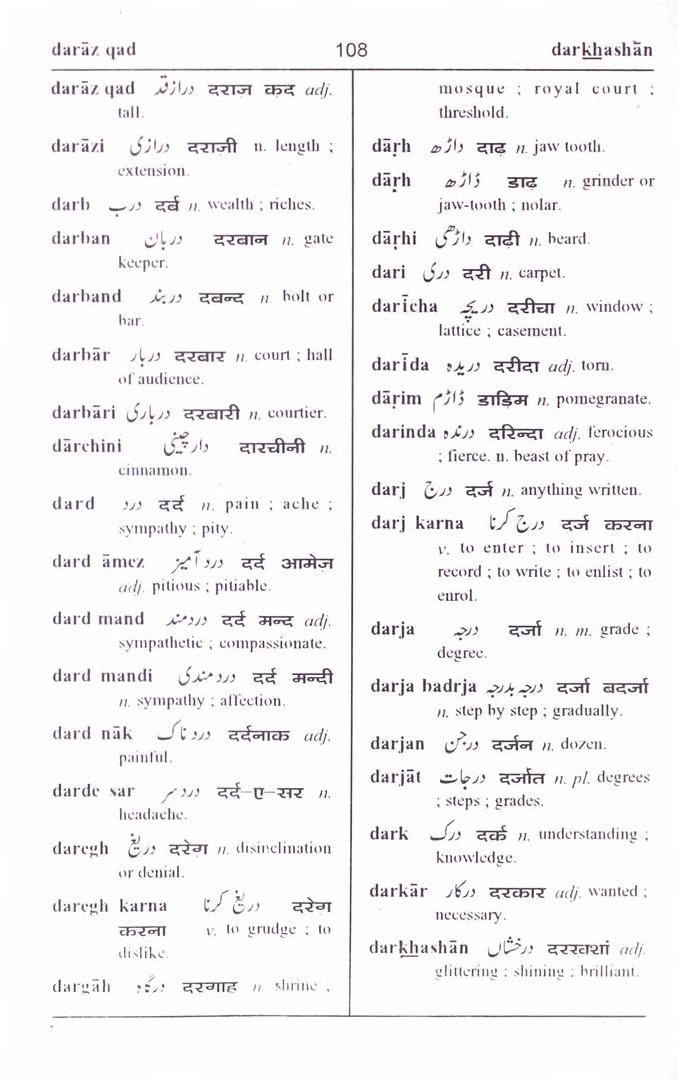 darāz qad 108 dar<u>kh</u>ashān
darāz qad درازقد दराज़ क़द adj.
tall.
darāzi درازی दराज़ी n. length ;
extension.
darb درب दर्ब n. wealth ; riches.
darban دربان दरबान n. gate
keeper.
darband دربند दबन्द n. bolt or
bar.
darbār دربار दरबार n. court ; hall
of audience.
darbāri درباری दरबारी n. courtier.
dārchini دارچینی दारचीनी n.
cinnamon.
dard درد दर्द n. pain ; ache ;
sympathy ; pity.
dard āmez درد آمیز दर्द आमेज़
adj. pitious ; pitiable.
dard mand دردمند दर्द मन्द adj.
sympathetic ; compassionate.
dard mandi درد مندی दर्द मन्दी
n. sympathy ; affection.
dard nāk درد ناک दर्दनाक adj.
painful.
darde sar درد سر दर्द-ए-सर n.
headache.
daregh دریغ दरेग़ n. disinclination
or denial.
daregh karna دریغ کرنا दरेग़
करना v. to grudge ; to
dislike.
dargāh درگاہ दरगाह n shrine ;
mosque ; royal court ;
threshold.
dāṛh داڑھ दाढ़ n. jaw tooth.
dāṛh ڈاڑھ डाढ़ n. grinder or
jaw-tooth ; nolar.
dāṛhi داڑھی दाढ़ी n. beard.
dari دری दरी n. carpet.
darīcha دریچہ दरीचा n. window ;
lattice ; casement.
darīda دریدہ दरीदा adj. torn.
dāṛim ڈاڑم डाड़िम n. pomegranate.
darinda درندہ दरिन्दा adj. ferocious
; fierce. n. beast of pray.
darj درج दर्ज n. anything written.
darj karna درج کرنا दर्ज करना
v. to enter ; to insert ; to
record ; to write ; to enlist ; to
enrol.
darja درجہ दर्जा n. m. grade ;
degree.
darja badrja درجہ بدرجہ दर्जा बदर्जा
n. step by step ; gradually.
darjan درجن दर्जन n. dozen.
darjāt درجات दर्जात n. pl. degrees
; steps ; grades.
dark درک दर्क n. understanding ;
knowledge.
darkār درکار दरकार adj. wanted ;
necessary.
dar<u>kh</u>ashān درخشاں दरख़शां adj.
glittering ; shining ; brilliant.